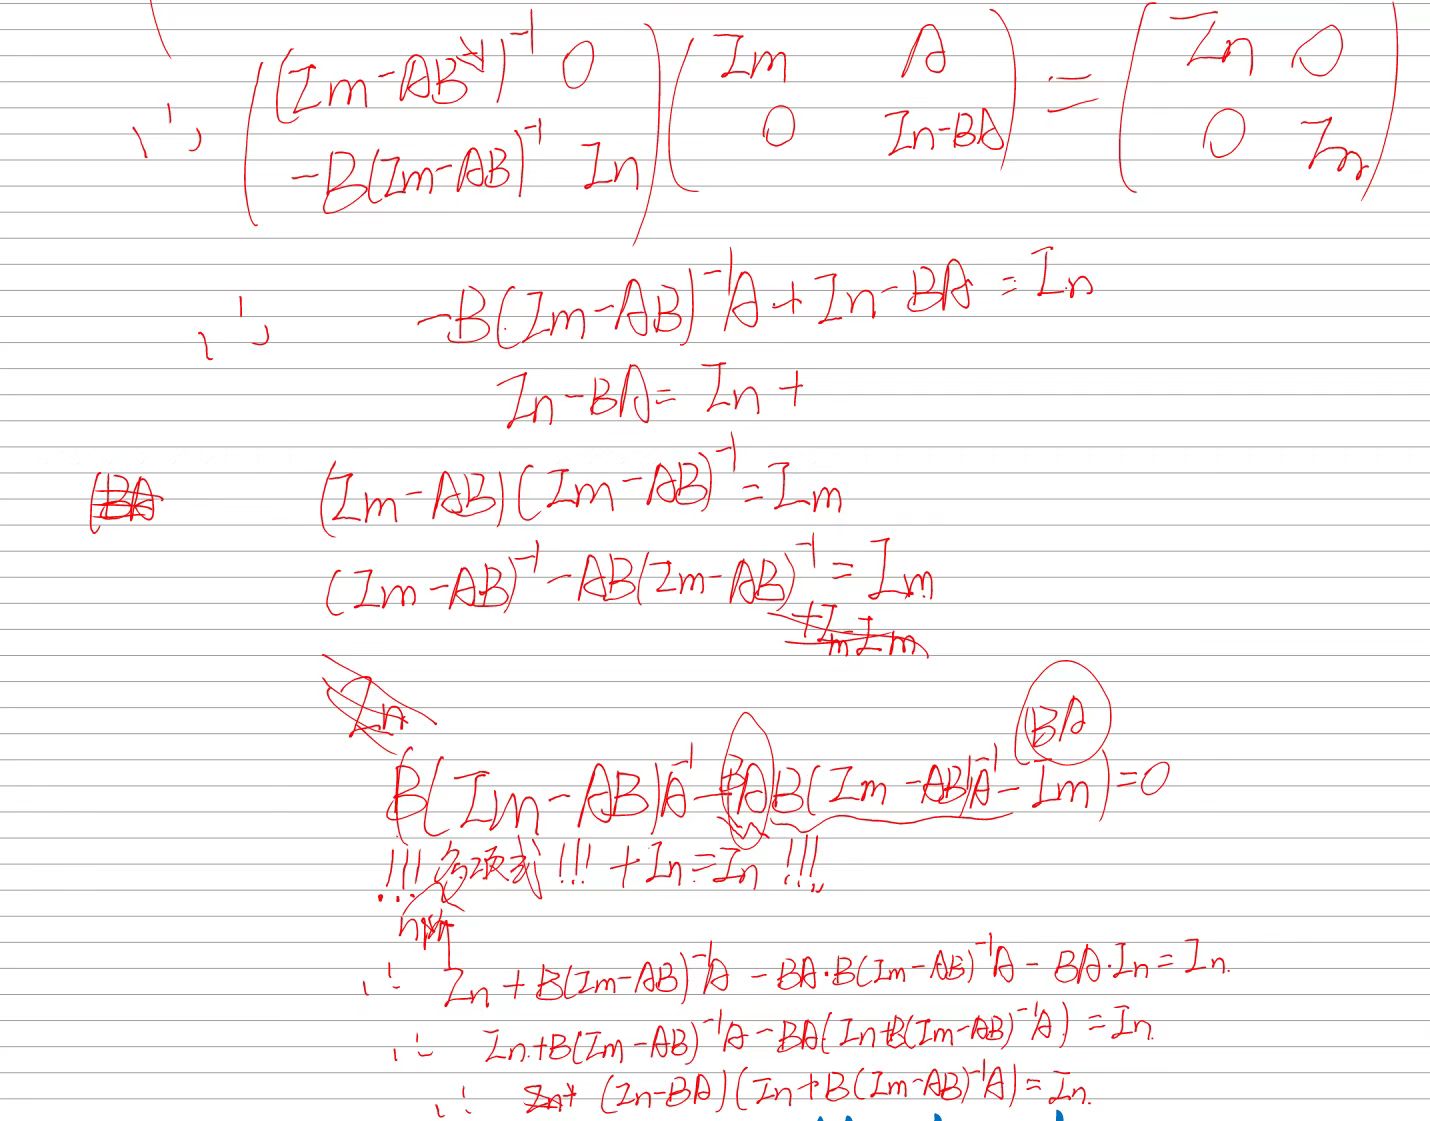 ∴ ((Im-AB)⁻¹ 0 (Im A = (In 0
-B(Im-AB)⁻¹ In) 0 In-BA) 0 In)
∴ -B(Im-AB)⁻¹A+In-BA=In
In-BA=In+
(Im-AB)(Im-AB)⁻¹=Im
(Im-AB)⁻¹-AB(Im-AB)⁻¹=Im
BA
B(Im-AB)A⁻¹-BAB(Im-AB)A⁻¹-Im)=0
!!! 多项式!!! +In=In !!!
n阶
∴ In+B(Im-AB)⁻¹A-BA·B(Im-AB)⁻¹A-BA·In=In
∴ In+B(Im-AB)⁻¹A-BA(In+B(Im-AB)⁻¹A)=In
∴ (In-BA)(In+B(Im-AB)⁻¹A)=In